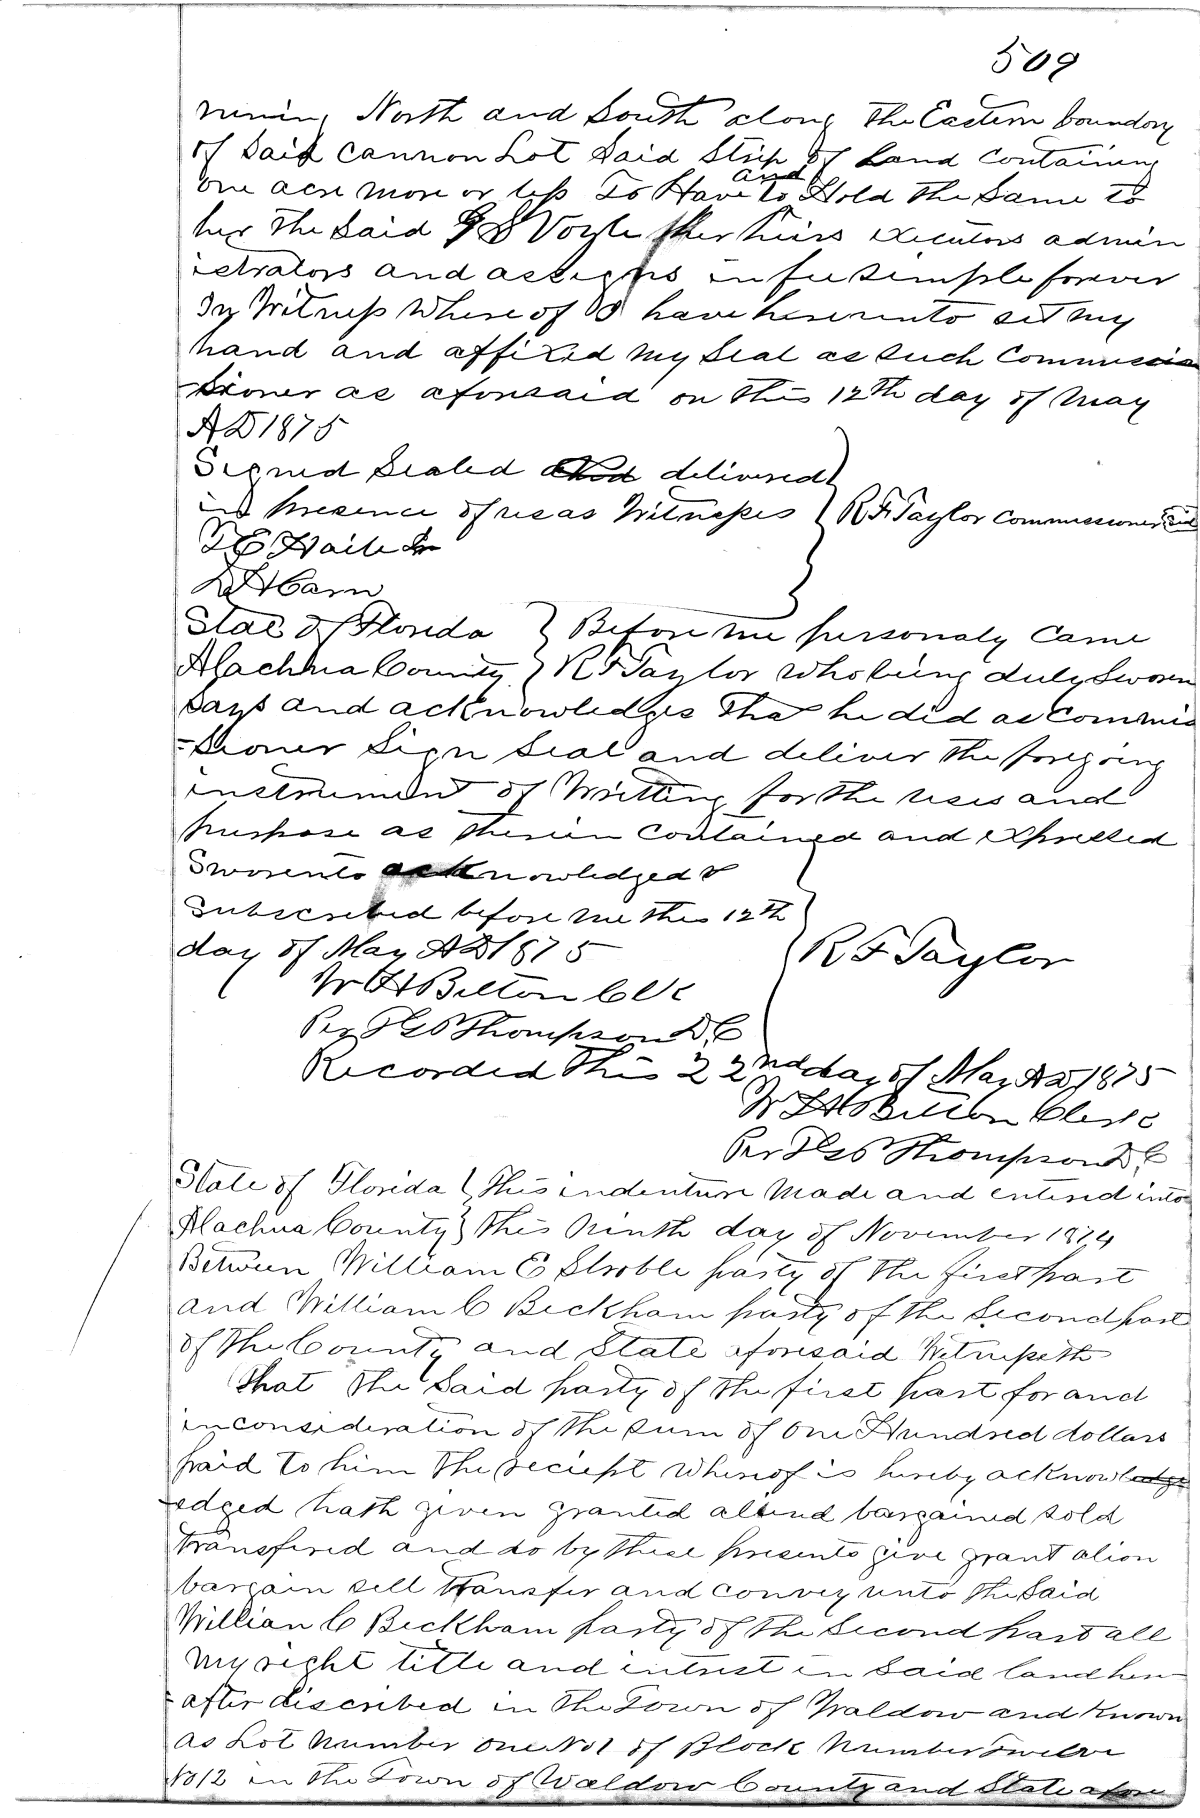 509
runing North and South along the Eastern boundary
of Said Cannon Lot Said Strip of Land containing
one acre more or less To Have and to Hold the Same to
her the Said S Voyle her heirs executors admin
istrators and assigns in fee simple forever
In Witness Where of I have hereunto set my
hand and affixed my Seal as such Commissio
-sioner as aforesaid on this 12th day of May
AD 1875
Signed Sealed and delivered
in presence of us as Witnesses } R F Taylor Commissioner Seal
T E Haile Jr
L H Carn
State of Florida } Before me personaly Came
Alachua County } R F Taylor who being duly Sworn
Says and acknowledges that he did as Commis
=sioner Sign Seal and deliver the foregoing
instrument of Writting for the uses and
purpose as therein Contained and expressed
Sworn to acknowledged &
Subscribed before me this 12th
day of May AD 1875 } R F Taylor
W H Belton Clk
Per Thompson D.C
Recorded this 22nd day of May AD 1875
W H Belton Clerk
Per Thompson D.C
State of Florida } This indenture Made and entered into
Alachua County } this Ninth day of November 1874
Between William E Stroble party of the first part
and William C Beckham party of the Second part
of the County and State aforesaid Witnesseth
That the Said party of the first part for and
in consideration of the sum of One Hundred dollars
paid to him the reciept whereof is hereby acknowledge
-edged hath given granted aliend bargained sold
transfired and do by these presents give grant alion
bargain sell transfer and convey unto the Said
Willian C Beckham party of the Second part all
My right title and intrest in said land here
=after discribed in the Town of Waldow and Known
as Lot Number One No1 of Block Number Twelve
No12 in the Town of Waldow County and State afore